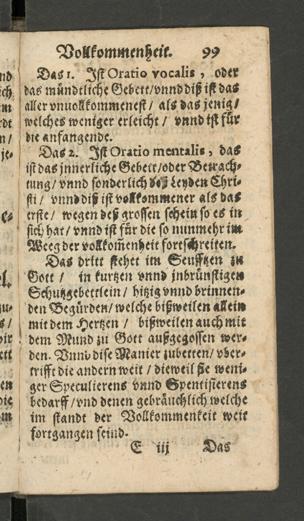 Vollkommenheit. 99
Das 1. Ist Oratio vocalis, oder
das mündtliche Gebett/vnnd diß ist das
aller vnuollkommenest/ als das jenig/
welches weniger erleicht/ vnnd ist für
die anfangende.
Das 2. Ist Oratio mentalis, das
ist das jnnerliche Gebett/oder Betrach-
tung/ vnnd sonderlich deß Leyden Chri-
sti/ vnnd diß ist vollkommener als das
erste/ wegen deß grossen schein so es in
sich hat/ vnnd ist für die so nunmehr im
Weeg der vollkom̃enheit fortschreiten.
Das dritt stehet im Seufftzen zu
Gott/ in kurtzen vnnd jnbrünstigen
Schutzgebettlein/ hitzig vnnd brinnen-
den Begürden/welche bißweilen allein
mit dem Hertzen/ bißweilen auch mit
dem Mund zu Gott außgegossen wer-
den. Vnnd dise Manier zubetten/ vber-
trifft die andern weit/ dieweil sie weni-
ger Speculierens vnnd Spentisierens
bedarff/vnd denen gebräuchlich welche
im standt der Vollkommenkeit weit
fortgangen seind.
E iij Das